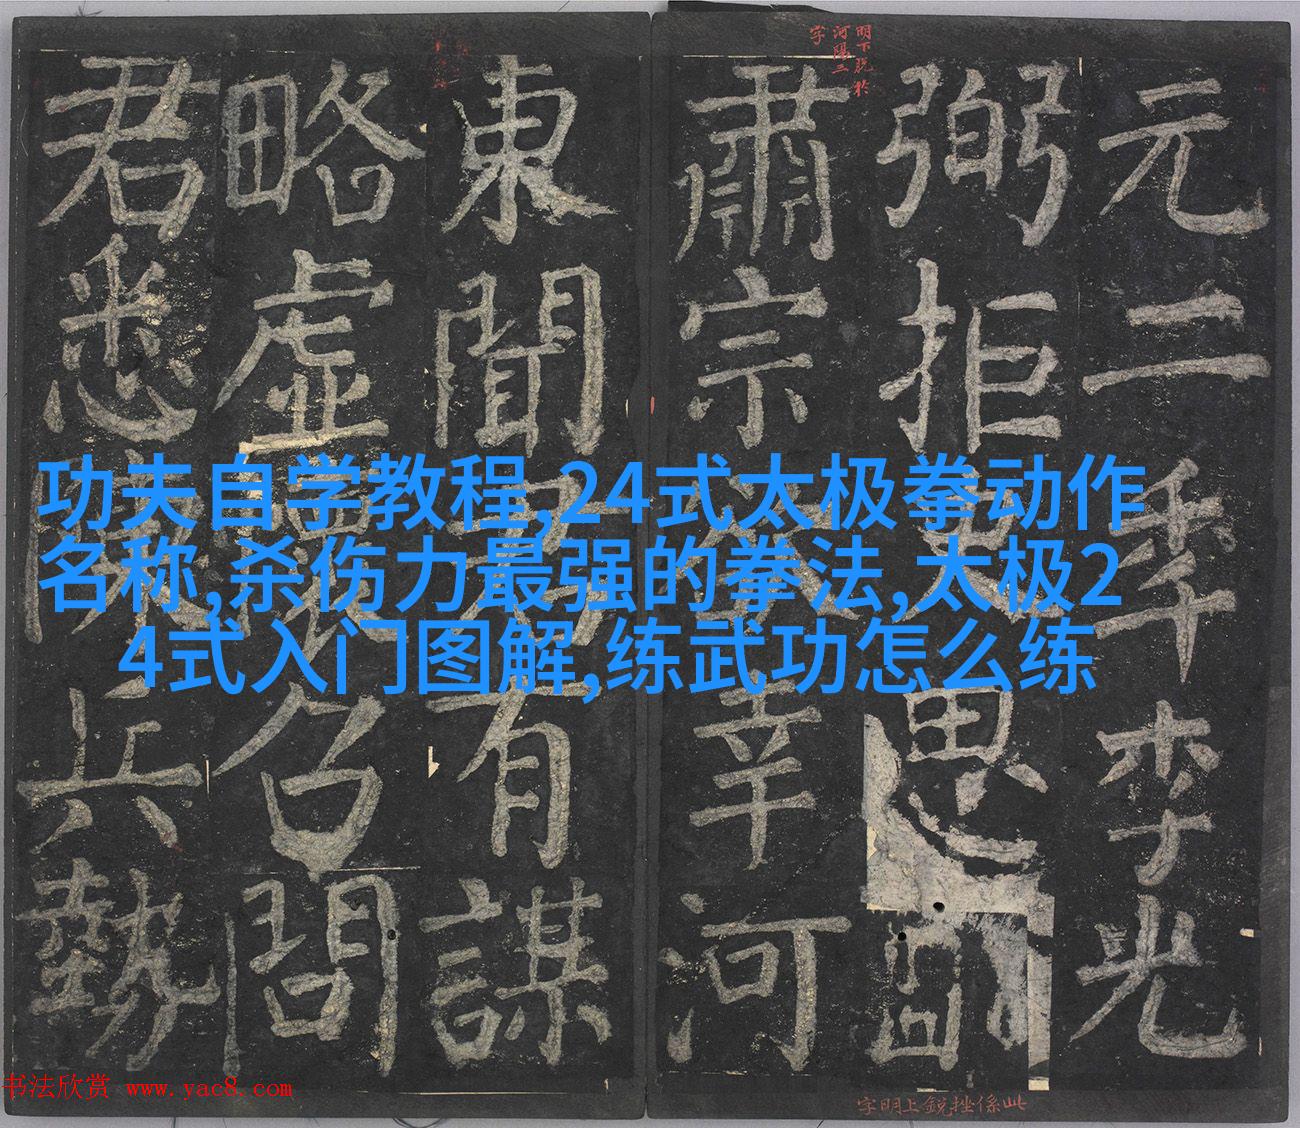 明下脱於
河陽二
字
元二秊李光
弼拒思
肅宗幸河
東聞有謀
略虛召問
君悉兵勢
功夫自学教程,24式太极拳动作
名称,杀伤力最强的拳法,太极2
4式入门图解,练武功怎么练
此係挫銳上明字
书法欣赏 www.yac8.com